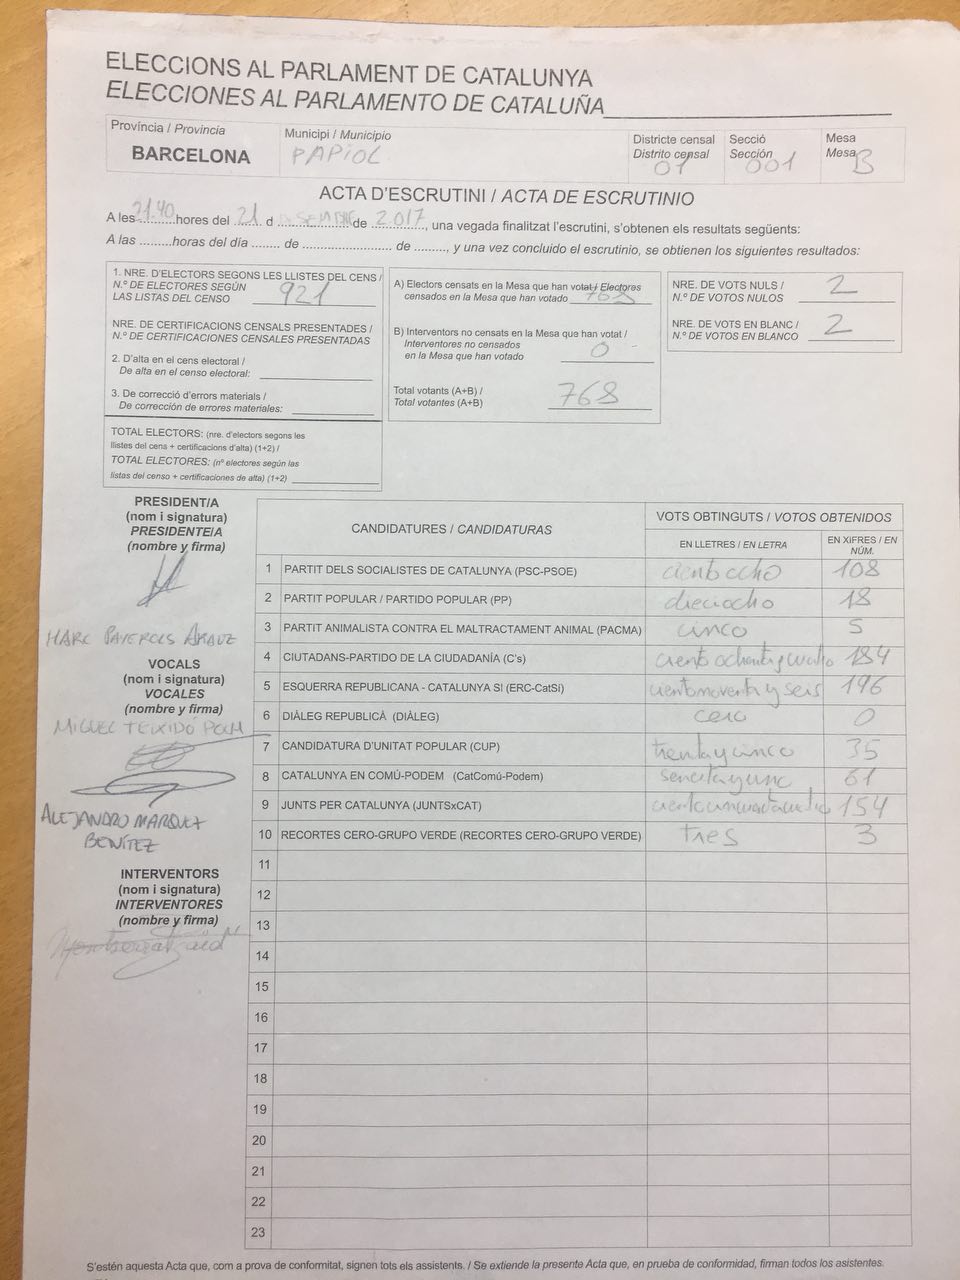 ELECCIONS AL PARLAMENT DE CATALUNYA
ELECCIONES AL PARLAMENTO DE CATALUÑA
Província / Provincia
BARCELONA
Municipi / Municipio
PAPIOL
Districte censal
Distrito censal
01
Secció
Sección
001
Mesa
Mesa
B
ACTA D'ESCRUTINI / ACTA DE ESCRUTINIO
A les 21.40 hores del 21 d DESEMBRE de 2017, una vegada finalitzat l'escrutini, s'obtenen els resultats següents:
A las ......... horas del día ........ de ......................... de .........., y una vez concluido el escrutinio, se obtienen los siguientes resultados:
1. NRE. D'ELECTORS SEGONS LES LLISTES DEL CENS /
N.º DE ELECTORES SEGÚN
LAS LISTAS DEL CENSO 921
NRE. DE CERTIFICACIONS CENSALS PRESENTADES /
N.º DE CERTIFICACIONES CENSALES PRESENTADAS
2. D'alta en el cens electoral /
De alta en el censo electoral:
3. De correcció d'errors materials /
De corrección de errores materiales:
TOTAL ELECTORS: (nre. d'electors segons les
llistes del cens + certificacions d'alta) (1+2) /
TOTAL ELECTORES: (nº electores según las
listas del censo + certificaciones de alta) (1+2)
A) Electors censats en la Mesa que han votat / Electores
censados en la Mesa que han votado 768
B) Interventors no censats en la Mesa que han votat /
Interventores no censados
en la Mesa que han votado 0
Total votants (A+B) /
Total votantes (A+B) 768
NRE. DE VOTS NULS /
N.º DE VOTOS NULOS 2
NRE. DE VOTS EN BLANC /
N.º DE VOTOS EN BLANCO 2
PRESIDENT/A
(nom i signatura)
PRESIDENTE/A
(nombre y firma)
MARC PAYEROLS ARAUZ
VOCALS
(nom i signatura)
VOCALES
(nombre y firma)
MIGUEL TEIXIDÓ
ALEJANDRO MARQUEZ
BENÍTEZ
INTERVENTORS
(nom i signatura)
INTERVENTORES
(nombre y firma)
CANDIDATURES / CANDIDATURAS
VOTS OBTINGUTS / VOTOS OBTENIDOS
EN LLETRES / EN LETRA
EN XIFRES / EN NÚM.
1 PARTIT DELS SOCIALISTES DE CATALUNYA (PSC-PSOE) ciento ocho 108
2 PARTIT POPULAR / PARTIDO POPULAR (PP) dieciocho 18
3 PARTIT ANIMALISTA CONTRA EL MALTRACTAMENT ANIMAL (PACMA) cinco 5
4 CIUTADANS-PARTIDO DE LA CIUDADANÍA (C's) ciento ochenta y cuatro 184
5 ESQUERRA REPUBLICANA - CATALUNYA SÍ (ERC-CatSí) ciento noventa y seis 196
6 DIÀLEG REPUBLICÀ (DIÀLEG) cero 0
7 CANDIDATURA D'UNITAT POPULAR (CUP) treinta y cinco 35
8 CATALUNYA EN COMÚ-PODEM (CatComú-Podem) sesenta y uno 61
9 JUNTS PER CATALUNYA (JUNTSxCAT) ciento cincuenta y cuatro 154
10 RECORTES CERO-GRUPO VERDE (RECORTES CERO-GRUPO VERDE) tres 3
11
12
13
14
15
16
17
18
19
20
21
22
23
S'estén aquesta Acta que, com a prova de conformitat, signen tots els assistents. / Se extiende la presente Acta que, en prueba de conformidad, firman todos los asistentes.